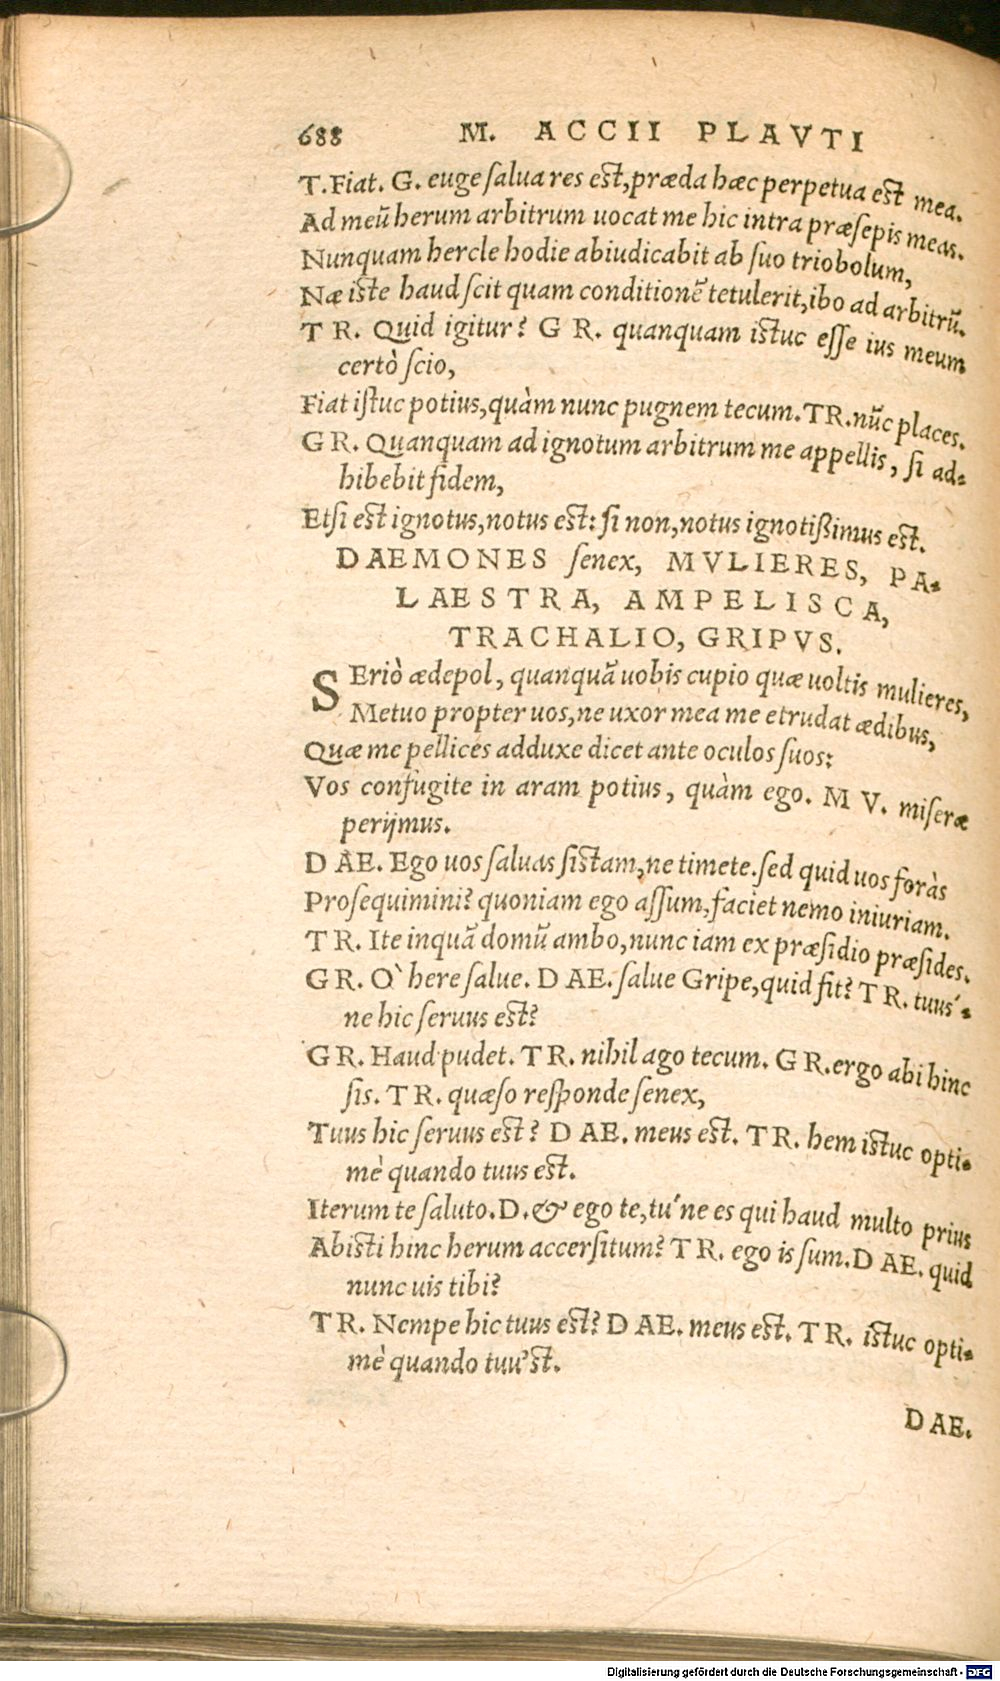 688 M. ACCII PLAVTI
T. Fiat. G. euge salua res est, præda hæc perpetua est mea.
Ad meũ herum arbitrum uocat me hic intra præsepis meas.
Nunquam hercle hodie abiudicabit ab suo triobolum,
Næ iste haud scit quam conditionẽ tetulerit, ibo ad arbitrũ.
TR. Quid igitur? GR. quanquam istuc esse ius meum
certò scio,
Fiat istuc potius, quàm nunc pugnem tecum. TR. nũc places.
GR. Quanquam ad ignotum arbitrum me appellis, si ad-
hibebit fidem,
Etsi est ignotus, notus est: si non, notus ignotißimus est.
DAEMONES senex, MVLIERES, PA-
LAESTRA, AMPELISCA,
TRACHALIO, GRIPVS.
SEriò ædepol, quanquã uobis cupio quæ uoltis mulieres,
Metuo propter uos, ne uxor mea me etrudat ædibus,
Quæ me pellices adduxe dicet ante oculos suos:
Vos confugite in aram potius, quàm ego. MV. miseræ
perijmus.
DAE. Ego uos saluas sistam, ne timete. sed quid uos foràs
Prosequimini? quoniam ego assum, faciet nemo iniuriam.
TR. Ite inquã domũ ambo, nunc iam ex præsidio præsides.
GR. Ò here salue. DAE. salue Gripe, quid fit? TR. tuus'-
ne hic seruus est?
GR. Haud pudet. TR. nihil ago tecum. GR. ergo abi hinc
sis. TR. quæso responde senex,
Tuus hic seruus est? DAE. meus est. TR. hem istuc opti-
mè quando tuus est.
Iterum te saluto. D. & ego te, tu'ne es qui haud multo prius
Abisti hinc herum accersitum? TR. ego is sum. DAE. quid
nunc uis tibi?
TR. Nempe hic tuus est? DAE. meus est. TR. istuc opti-
mè quando tuu'st.
DAE.
Digitalisierung gefördert durch die Deutsche Forschungsgemeinschaft - DFG